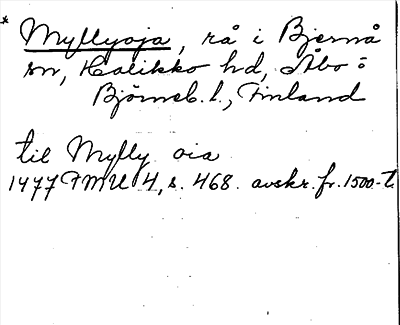 * Myllyoja, rå i Bjernå
sn, Halikko hd, Åbo o
Björneb. l., Finland
till Mylly oia
1477 FMU 4, s. 468. avskr. fr. 1500-t.